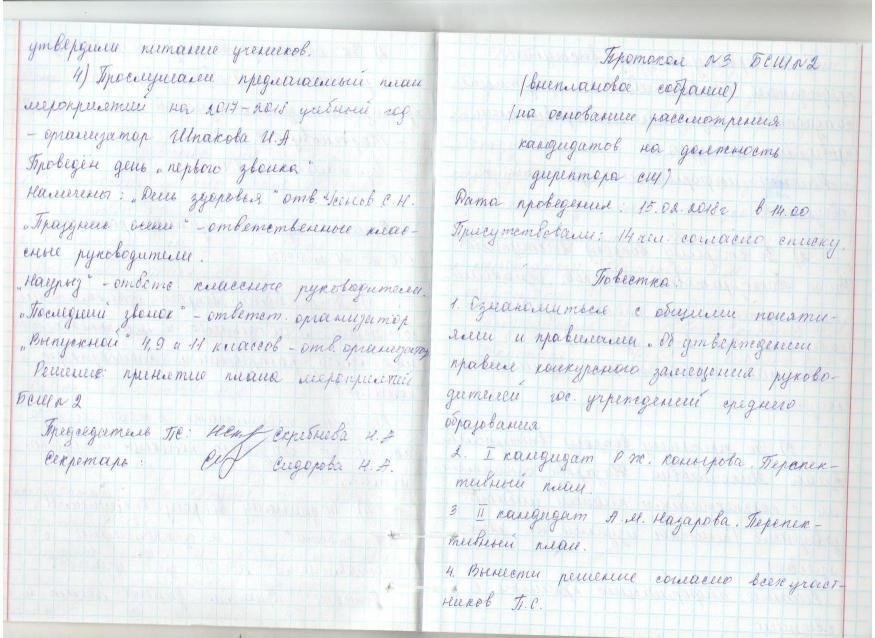 утвердили питание учеников.
4) Прослушали предлагаемый план
мероприятий на 2017-2018 учебный год
- организатор Шпакова И.А
Проведён день „первого звонка"
Намечены: „День здоровья" отв. С.Н.
„Праздник осени" - ответственные клас-
сные руководители.
„Наурыз" - ответс классные руководители.
„Последний звонок" - ответст. организатор
„Выпускной" 4,9 и 11 классов - отв. организатор
Решение: принятие плана мероприятий
БСШ№2
Председатель ПС: Скребнева Н.А
Секретарь: Сидорова Н.А.
Протокол №3 БСШ№2
(внеплановое собрание)
(на основании рассмотрения
кандидатов на должность
директора СШ)
Дата проведения: 15.02.2018г в 14.00
Присутствовали: 14 чел. согласно списку.
Повестка
1. Ознакомиться с общими поняти-
ями и правилами „об утверждении
правил конкурсного замещения руково-
дителей гос. учреждений среднего
образования
2. I кандидат Р.Ж. Конырова. Перспек-
тивный план.
3 II кандидат А.М. Назарова. Перспек-
тивный план.
4. Вынести решение согласно всех участ-
ников П.С.